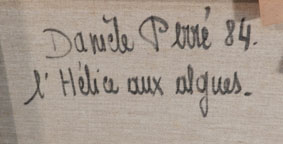 Danièle Perré 84.
l'Hélice aux algues.